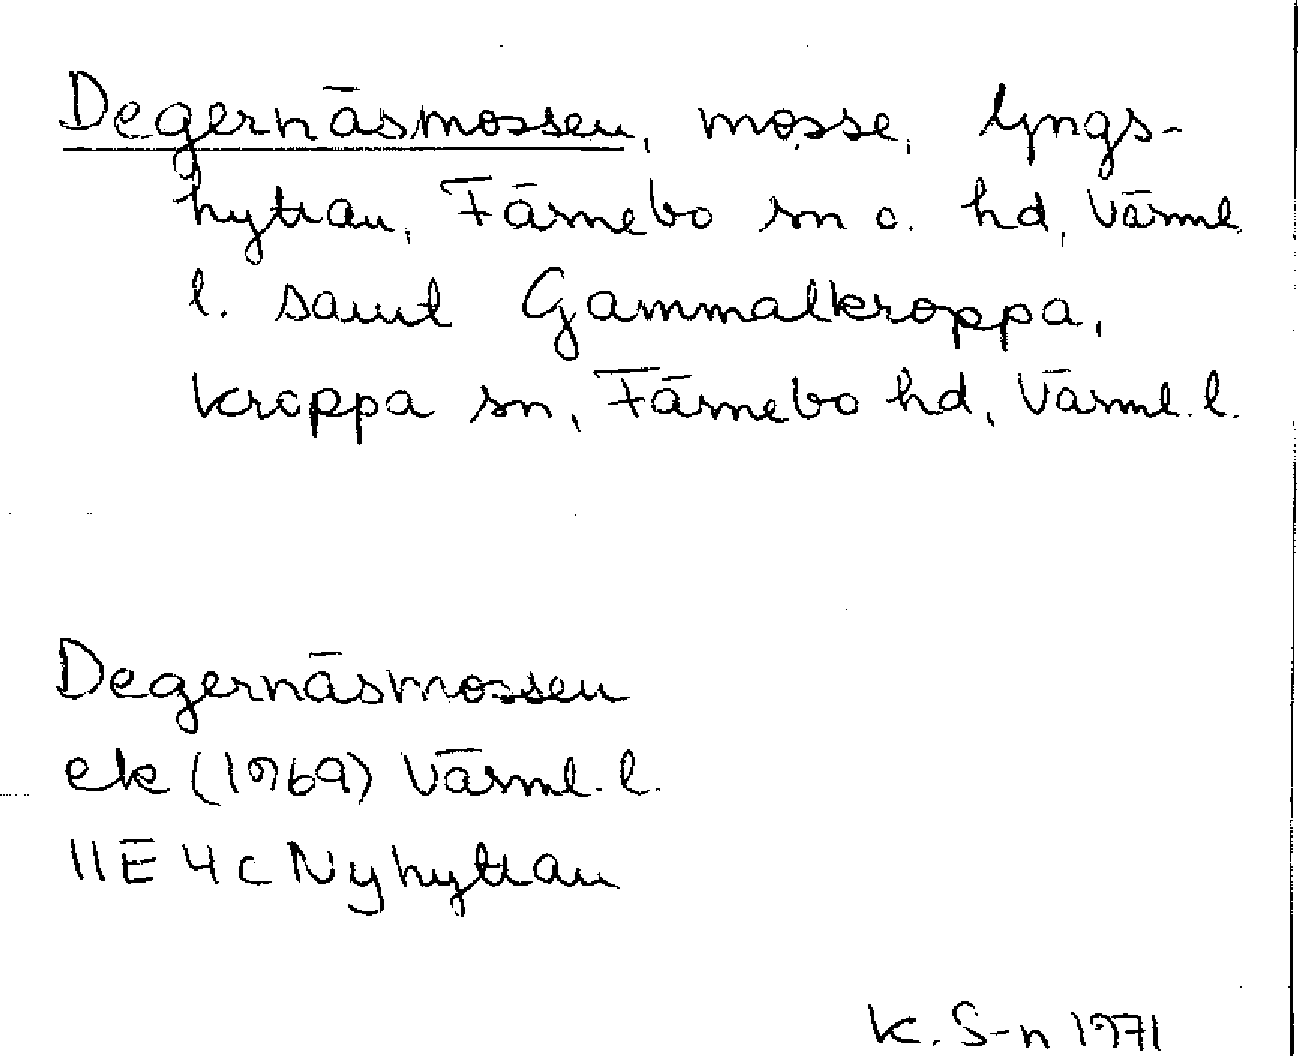 Degernäsmossen, mosse, Lyngs-
hyttan, Färnebo sn o. hd, Värml.
l. samt Gammalkroppa,
Kroppa sn, Färnebo hd, Värml. l.
Degernäsmossen
ek (1969) Värml. l.
11E 4c Nyhyttan
K. S-n 1971